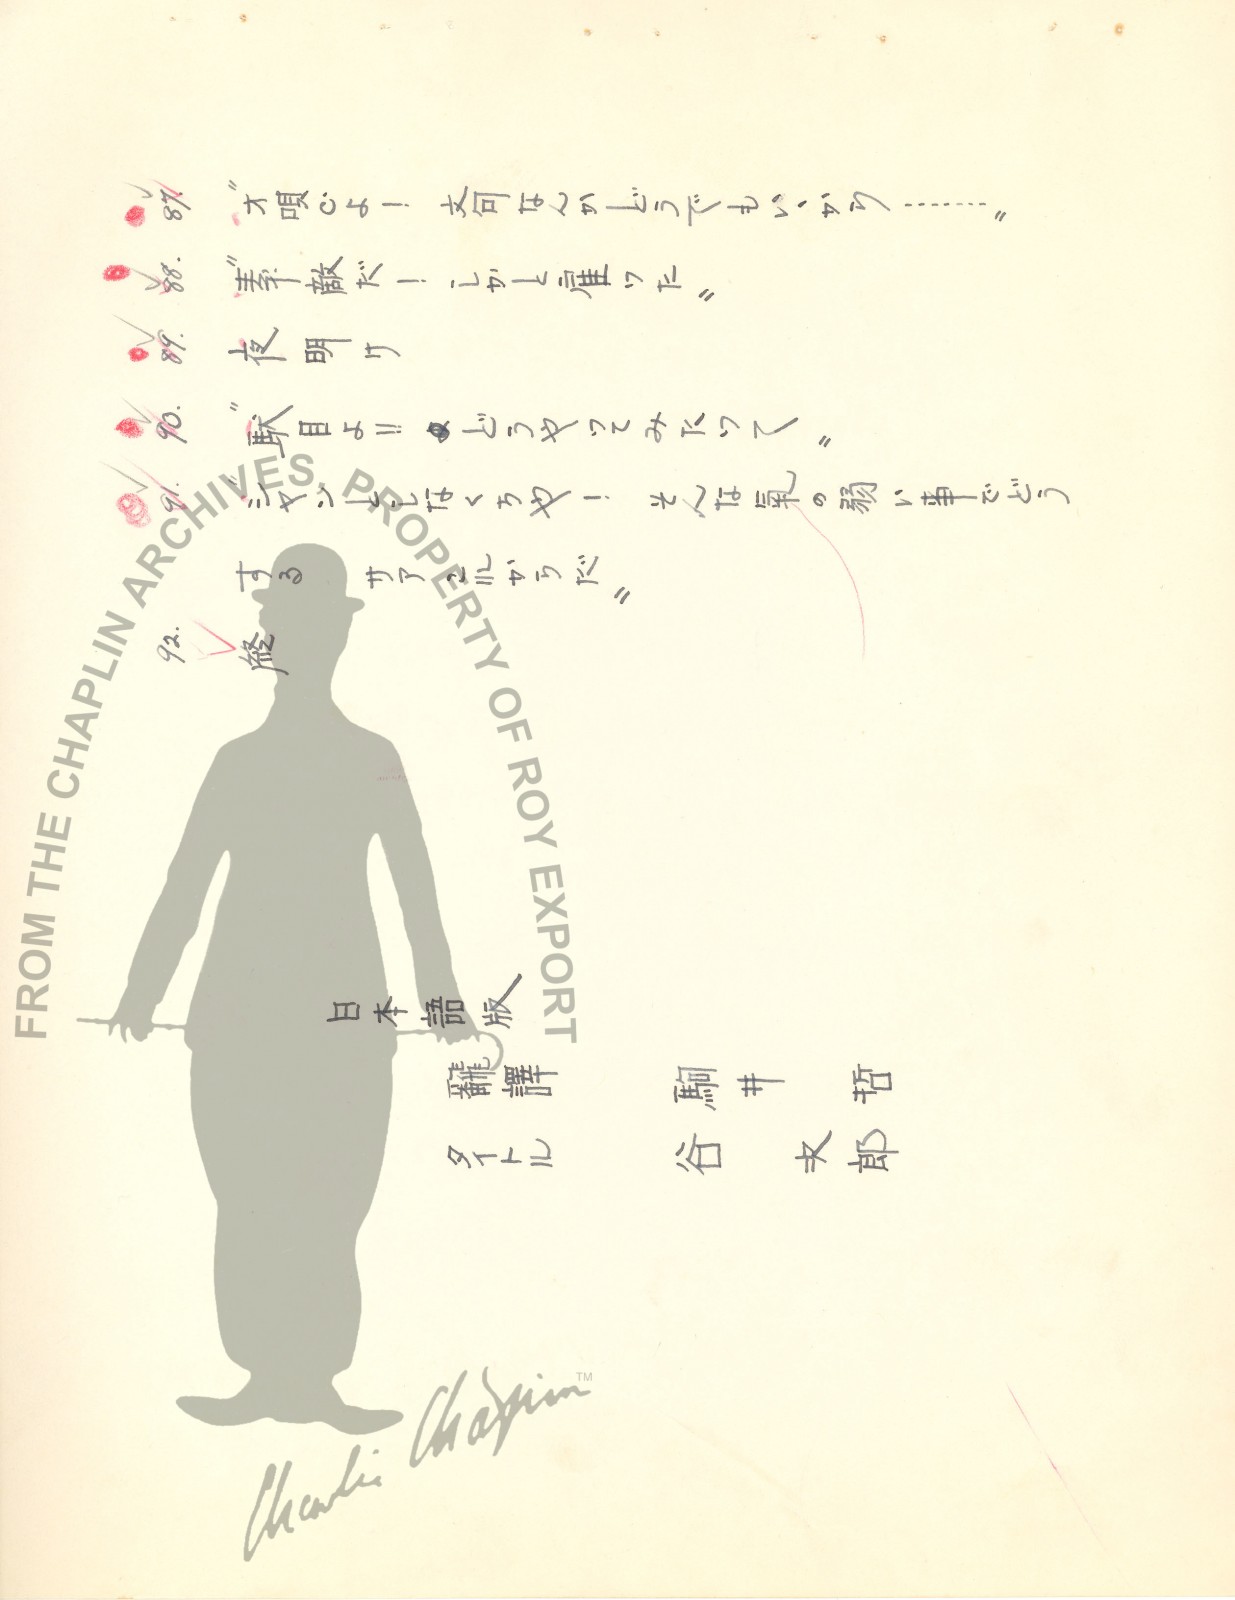 87. "オ唄ひよ! 文句なんかどうでもいゝから………"
88. "素敵だ! しかと雇つた"
89. 夜明け
90. "駄目よ!! どうやつてみたつて"
91. "シヤンとしなくちや! そんな氣の弱い事でどう
する サア コレからだ"
92. 終
日本語版
飜譯 駒井 哲
タイトル 谷 文郎
FROM THE CHAPLIN ARCHIVES, PROPERTY OF ROY EXPORT
Charlie Chaplin TM